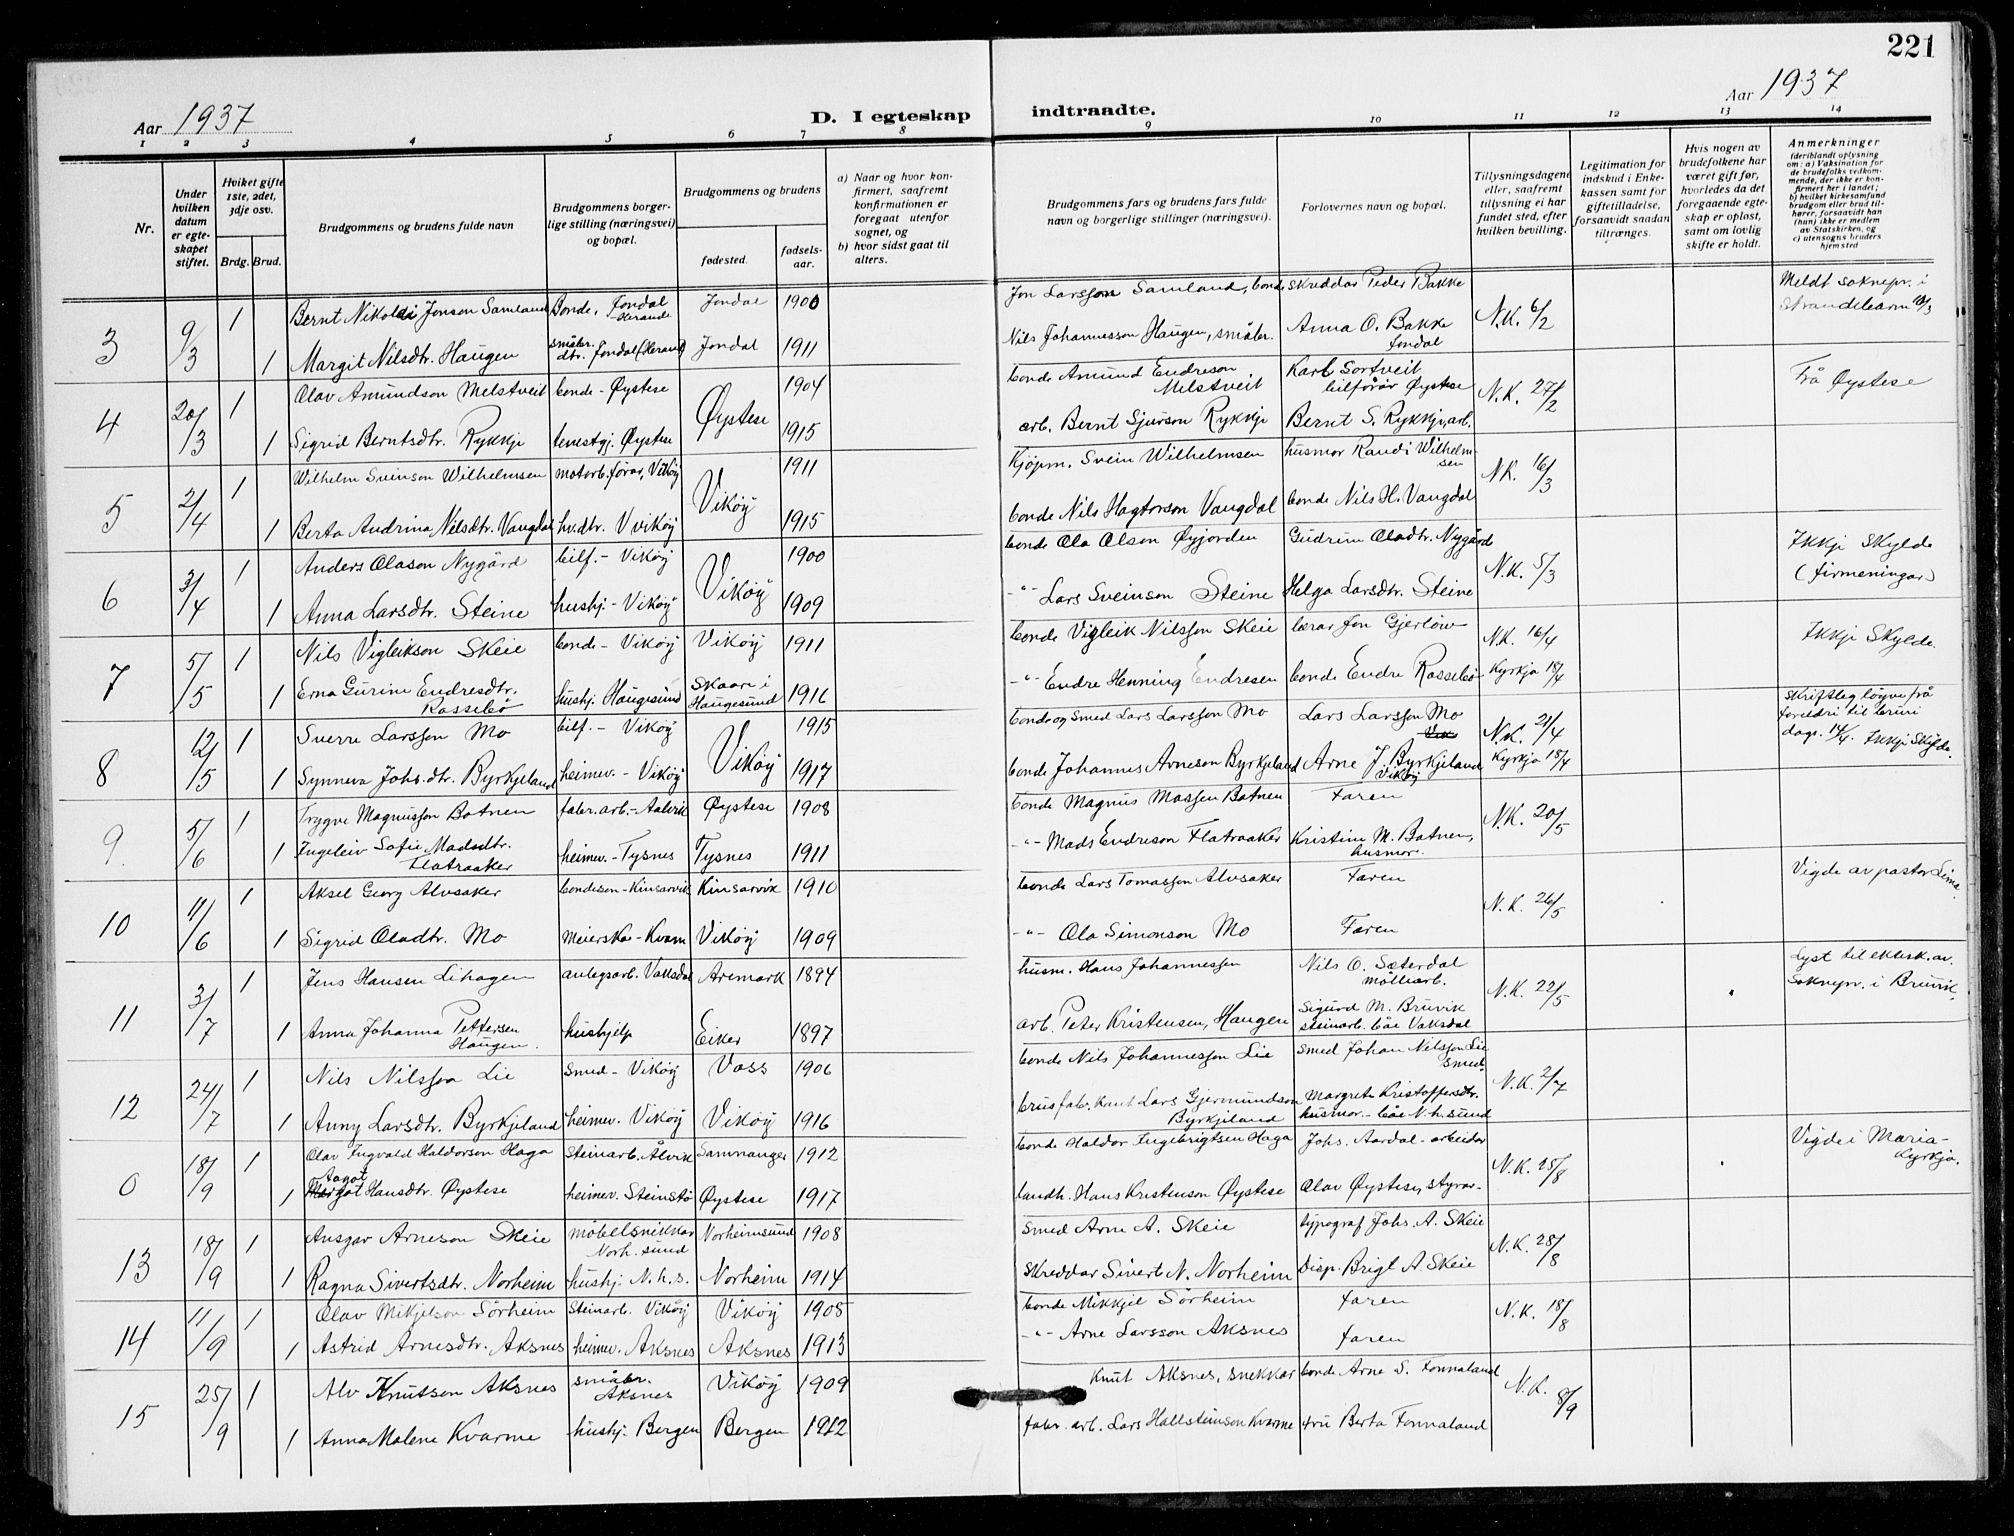 221
Aar 1937
D. I egteskap indtraadte.
Aar 1937
1 2 3 4 5 6 7 8 9 10 11 12 13 14
Nr.
Under hvilken datum er egteskapet stiftet.
Hviket gifte 1ste, 2det, 3dje osv.
Brdg. Brud.
Brudgommens og brudens fulde navn
Brudgommens borgerlige stilling (næringsvei) og bopæl.
Brudgommens og brudens
fødested.
fødselsaar.
a) Naar og hvor konfirmert, saafremt konfirmationen er foregaat utenfor sognet, og
b) hvor sidst gaat til alters.
Brudgommens fars og brudens fars fulde navn og borgerlige stillinger (næringsvei).
Forlovernes navn og bopæl.
Tillysningsdagene eller, saafremt tillysning ei har fundet sted, efter hvilken bevilling.
Legitimation for indskud i Enkekassen samt for giftetilladelse, forsaavidt saadan tiltrænges.
Hvis nogen av brudefolkene har været gift før, hvorledes da det foregaaende egteskap er opløst, samt om lovlig skifte er holdt.
Anmerkninger
(deriblandt oplysning om: a) Vaksination for de brudefolks vedkommende, der ikke er konfirmert her i landet; b) hvilket kirkesamfund brudgom eller brud tilhører, forsaavidt han (hun) ikke er medlem av Statskirken, og c) utensogns bruders hjemsted
3 9/3 1 Bernt Nikolai Jonson Samland Bonde, Jondal Herande Jondal 1900 Jon Larsson Samland, bonde skreddar Peder Bakke N.K. 6/2 Meldt soknepr. i Strandebarm 10/3
1 Margit Nilsdtr. Haugen småbr. dtr. Jondal (Herand) Jondal 1911 Nils Johannesson Haugen, småbr. Anna O. Bakke Jondal
4 20/3 1 Olav Amundson Melstveit bonde - Øystese Øystese 1904 bonde Amund Endreson Melstveit Karl Sortveit bilförar Øystese N.K. 27/2 Frå Øystese
1 Sigrid Berntsdtr. Rykkje tenestgj. Øystese 1915 arb. Bernt Sjurson Rykkje Bernt S. Rykkje, arb.
5 2/4 1 Wilhelm Sveinson Wilhelmsen motorb.förar, Vikøy Vikøy 1911 Kjøpm. Svein Wilhelmsen husmor Randi Wilhelmsen N.K. 16/3
1 Berta Andrina Nilsdtr. Vangdal hv.dtr. Vikøy 1915 bonde Nils Hagtorson Vangdal bonde Nils H. Vangdal
6 3/4 1 Anders Olason Nygård bilf. - Vikøy Vikøy 1900 bonde Ola Olson Øyjorden Gudrun Oladtr. Nygård N.K. 5/3 Ikkje Skylde (firmeningar)
1 Anna Larsdtr. Steine hushj. - Vikøy 1909 -"- Lars Sveinson Steine Helga Larsdtr. Steine
7 5/5 1 Nils Vigleikson Skeie bonde - Vikøy Vikøy 1911 bonde Vigleik Nilsson Skeie lærar Jon Gjerløw N.K. 16/4 Ikkje Skylde.
1 Erna Gurine Endresdtr. Rossebø hushj. Haugesund Skaare i Haugesund 1916 -"- Endre Henning Endresen bonde Endre Rossebø Kyrkja 18/4
8 12/5 1 Sverre Larsson Mo bilf. - Vikøy Vikøy 1915 bonde og smed Lars Larsson Mo Lars Larsson Mo N.K. 21/4 skriftleg løyve frå foreldri til bruri dags. 14/4. Ikkje Skylde.
1 Synneva Johs.dtr. Byrkjeland heimev. - Vikøy 1917 bonde Johannes Arneson Byrkjeland Arne J. Byrkjeland Vikøy Kyrkja 18/4
9. 5/6 1 Trygve Magnusson Botnen fabr.arb. - Aalvik Øystese 1908 bonde Magnus Mosson Botnen Faren N.K. 20/5
1 Ingeleiv Sofie Madsdtr. Flatraaker heimev. - Tysnes Tysnes 1911 -"- Mads Endreson Flatraaker Kristine M. Botnen, husmor.
10 11/6 1 Aksel Georg Alvsaker bondeson - Kinsarvik Kinsarvik 1910 bonde Lars Tomasson Alvsaker Faren N.K. 26/5 Vigde av pastor Lima.
1 Sigrid Oladtr. Mo Meierske - Kvam Vikøy 1909 -"- Ola Simonson Mo Faren
11 3/7 1 Jens Hansen Lihagen anlegsarb. Vaksdal Aremark 1894 husm. Hans Johannessen Nils O. Sæterdal mölliarb. N.K. 22/5 Lyst til ektesk. av. Soknepr. i Bruvik.
1 Anna Johanna Pettersen Haugen. hushjelp Eiker 1897 arb. Peter Kristensen, Haugen Sigurd M. Bruvik steinarb. båe Vaksdal
12 24/7 1 Nils Nilsson Lie Smed - Vikøy Voss 1906 bonde Nils Johannesson Lie smed Johan Nilsson Lie smed N.K. 2/7
1 Anny Larsdtr. Byrkjeland heimev. Vikøy Vikøy 1916 brusfabrikant Lars Gjermundson Byrkjeland Margrete Kristoffersdtr. husmor - båe N.h.sund
0 18/9 1 Olav Ingvald Haldorson Haga Steinarb. Ålvik Samnanger 1912 bonde Haldor Ingebrigtsen Haga Johs. Aardal - arbeidar N.K. 28/8 Vigde i Mariakyrkja.
1 Aagot Hansdtr. Øystese heimev. Steinstø Øystese 1917 landh. Hans Kristenson Øystese Olav Øystese, styrar-
13 18/9 1 Ansgar Arneson Skeie möbelsnikkar Norh.sund Norheimsund 1908 Smed Arne A. Skeie typograf Johs. A. Skeie N.K. 28/8
1 Ragna Sivertsdtr. Norheim hushj. N.h.s. Norheim 1914 Skreddar Sivert N. Norheim Disp. Brigt A Skeie
14 11/9 1 Olav Mikjelson Sörheim Steinarb. Vikøy Vikøy 1908 bonde Mikkjel Sörheim Faren N.K. 18/8
1 Astrid Arnesdtr. Aksnes heimev. Aksnes Aksnes 1913 -"- Arne Larsson Aksnes Faren
15 25/9 1 Alv Knutson Aksnes småbr. Aksnes Vikøy 1909 Knut Aksnes, snekkar bonde Arne S. Fonnaland N.K. 8/9
1 Anna Malene Kvarme hushj. Bergen Bergen 1912 fabr. arb. Lars Hallsteinson Kvarme fru Berta Fonnaland